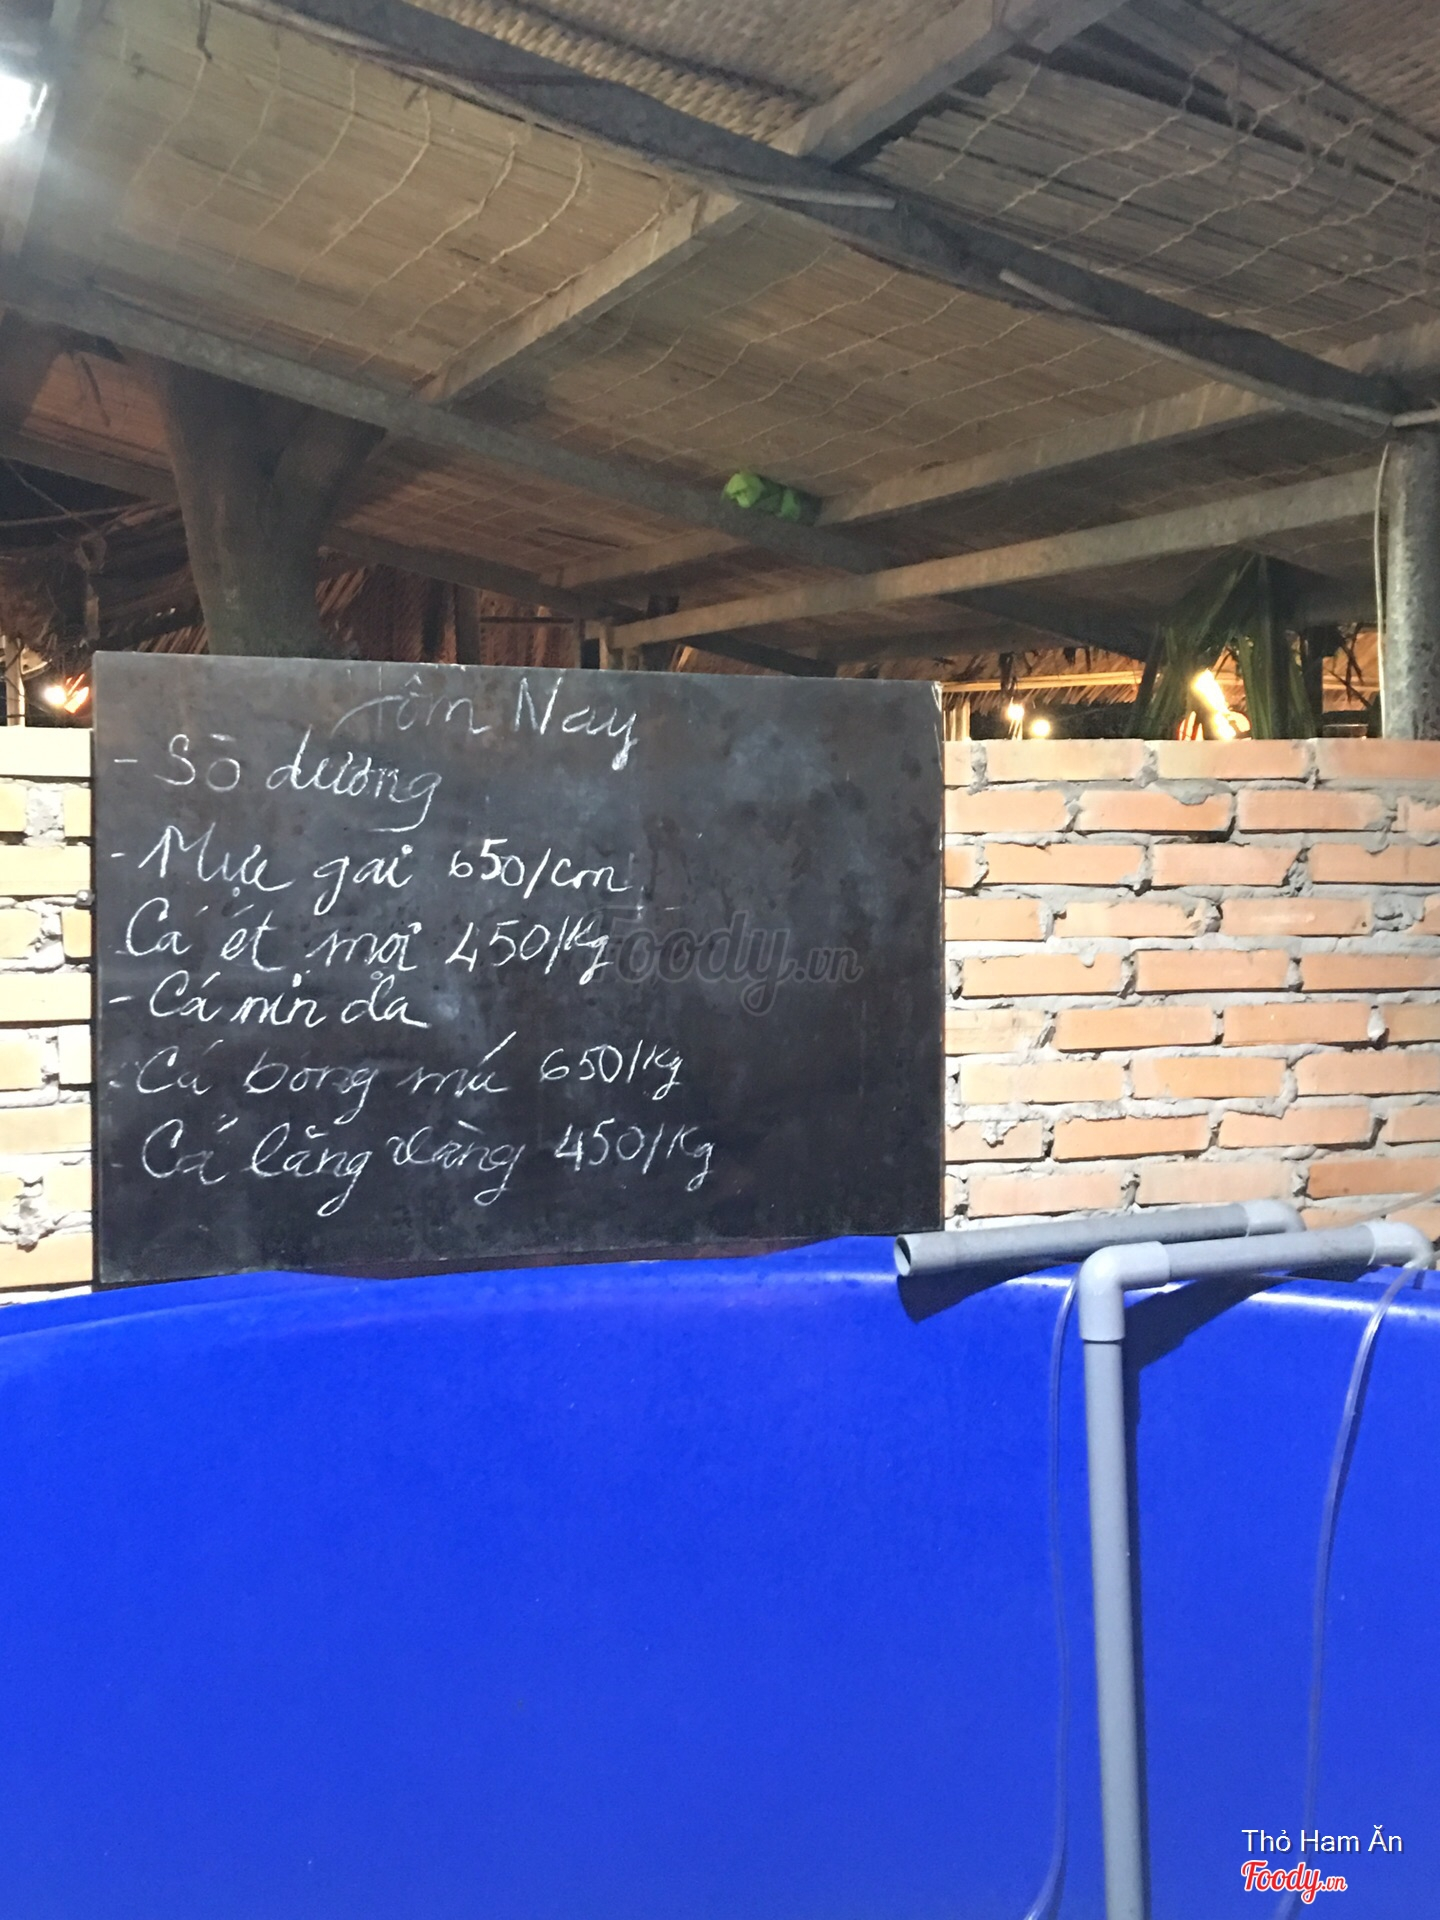 Hôm Nay
- Sò dương
- Mực gai 650/con
Cá ét mọi 450/Kg
- Cá nin da
- Cá bóng mú 650/kg
- Cá lăng vàng 450/Kg
Foody.vn
Thỏ Ham Ăn
Foody.vn